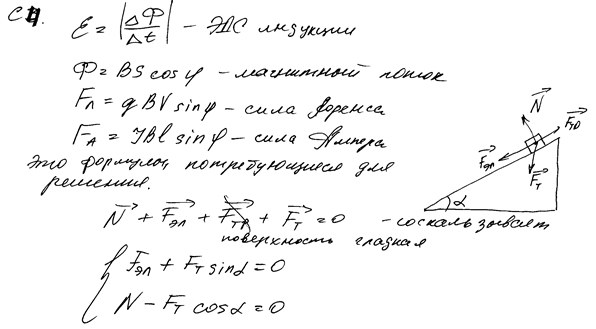 С4.
ℰ = |ΔΦ/Δt| – ЭДС индукции
Φ = BS cos φ – магнитный поток
Fл = qBV sin φ – сила Лоренса
FА = IBl sin φ – сила Ампера
Это формулы, потребующиеся для
решения.
N + Fэл + Fтр + Fт = 0 – соскальзывает
поверхность гладкая
Fэл + Fт sin α = 0
N – Fт cos α = 0
N
Fтр
Fэл
Fт
α